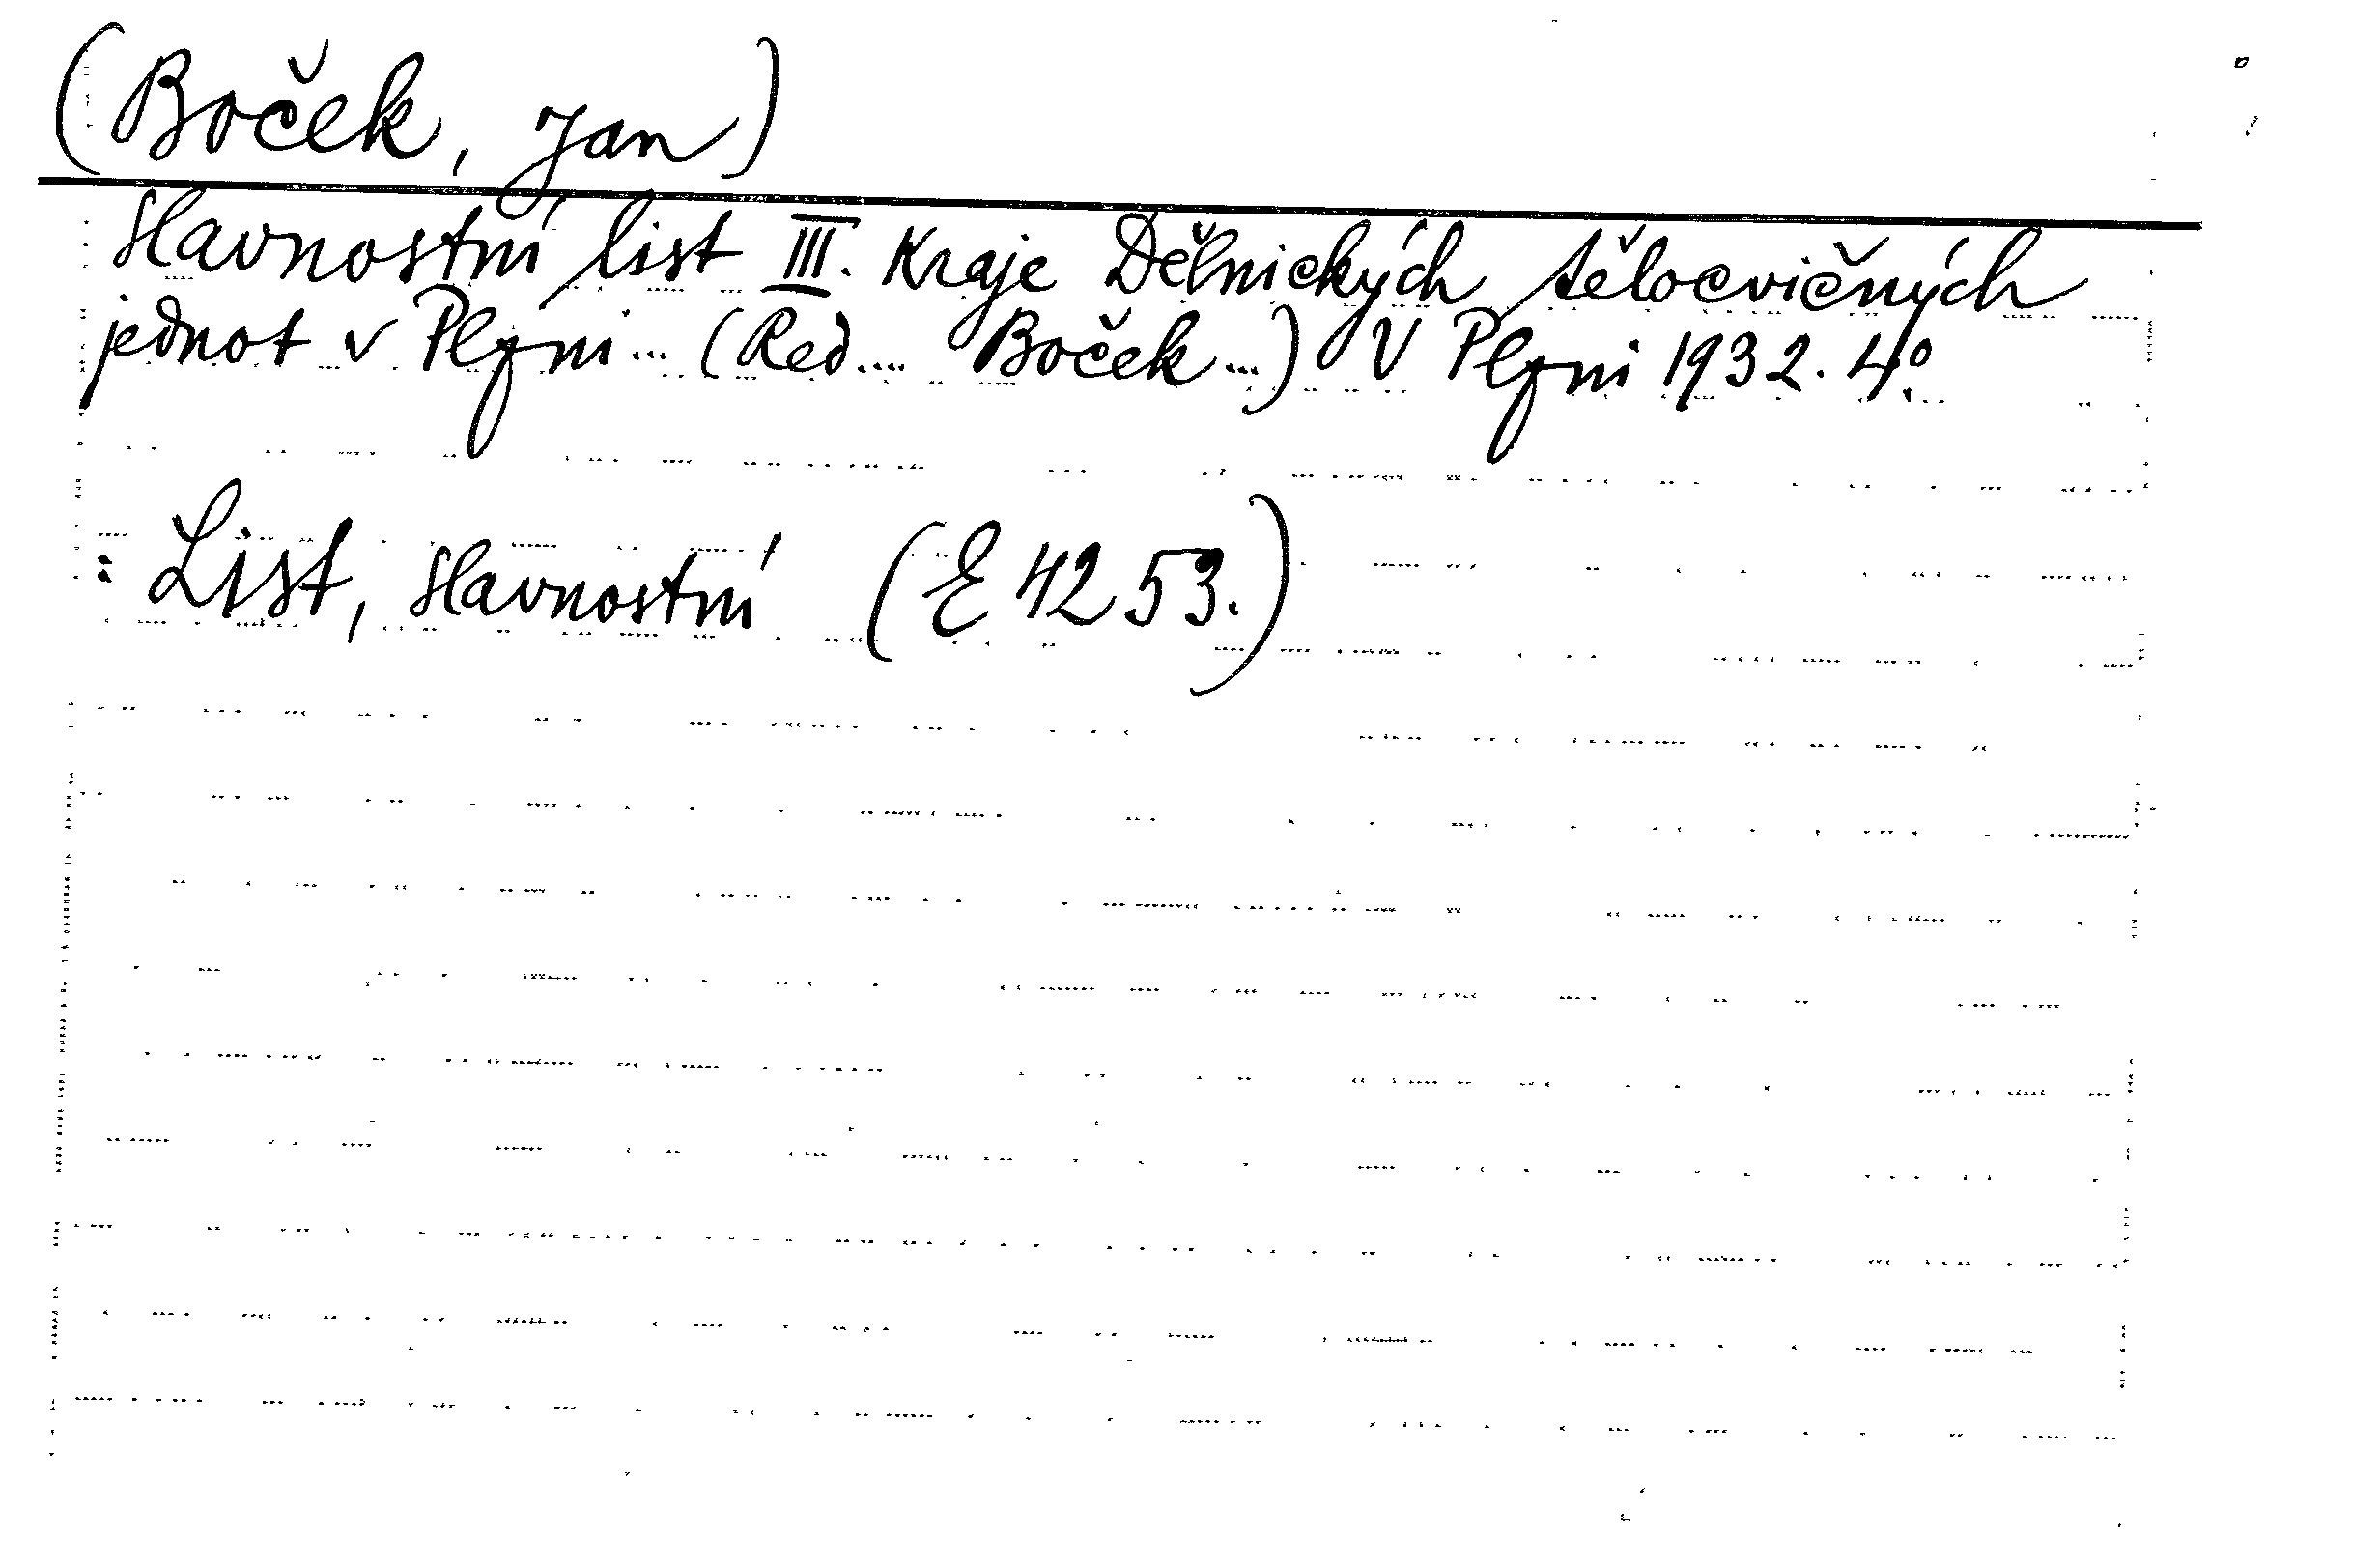 (Boček, Jan)
Slavnostní list III. Kraje Dělnických tělocvičných
jednot v Plzni... (Red.... Boček...) V Plzni 1932. 4°.
: List, slavnostní (E 4253.)